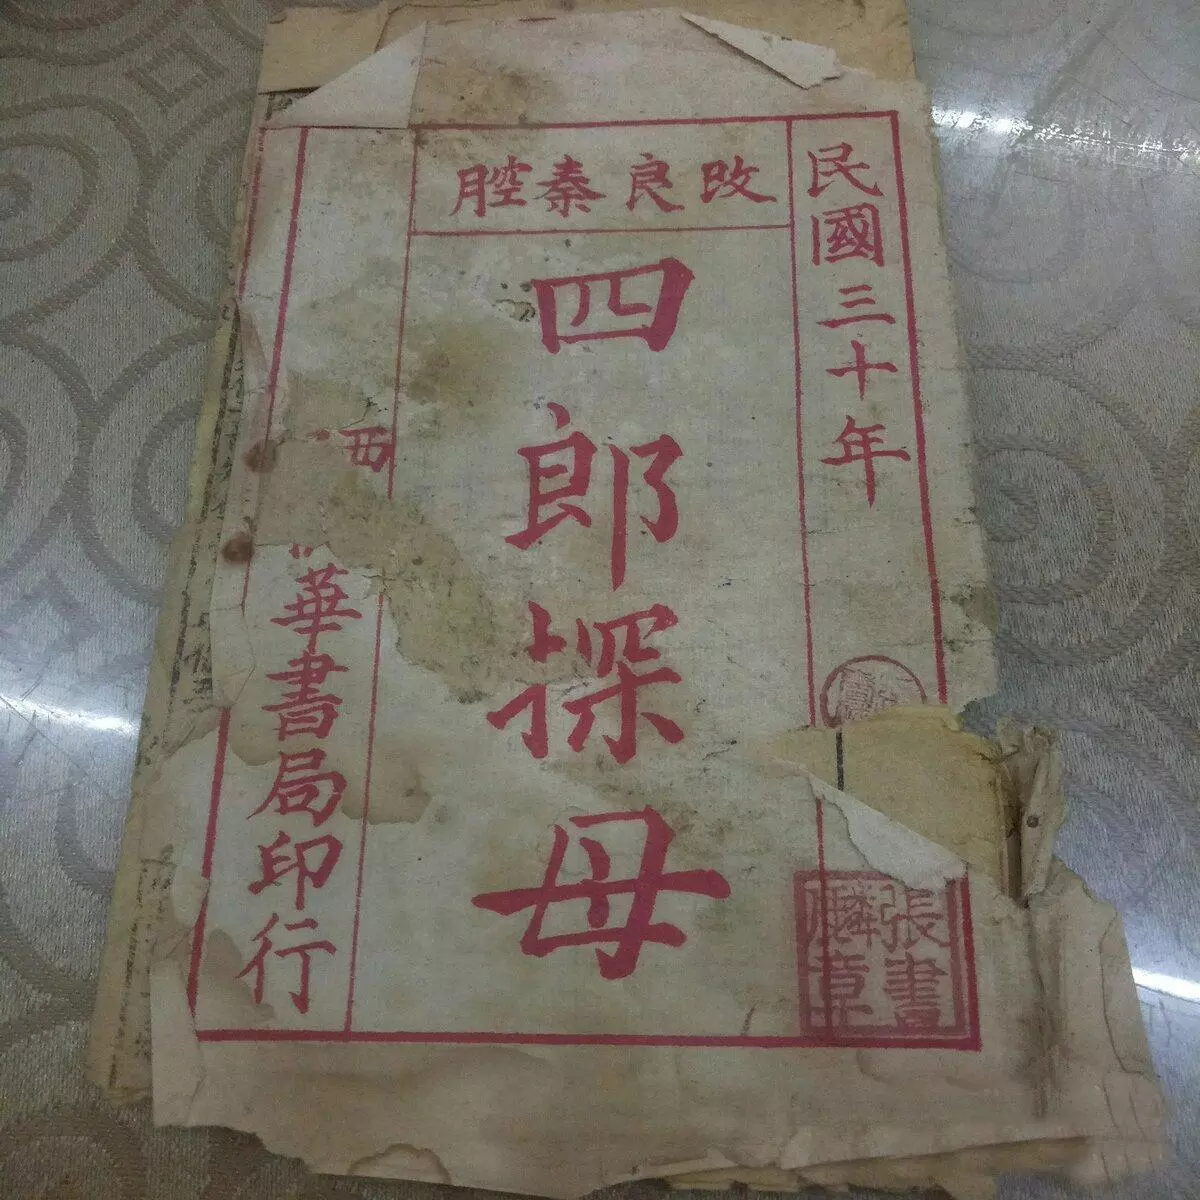 民國三十年
改良秦腔
四郎探母
西
華書局印行
張書
麟章